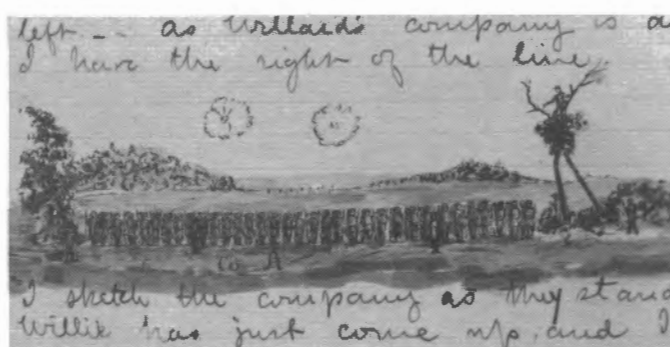 left -- as Willard's company is a
I have the right of the line.
Co A
I sketch the company as they stand
Willie has just come up, and I